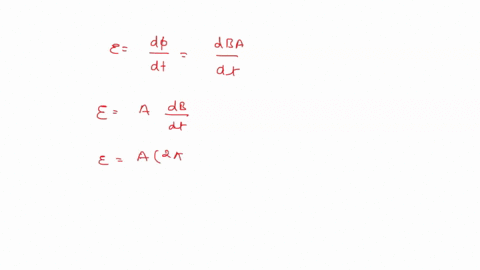 ε = dφ/dt = dBA/dt
ε = A dB/dt
ε = A(2π